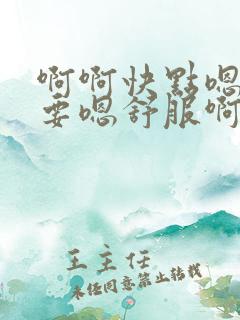 啊啊快點嗯
要嗯舒服啊
王主任
未经同意禁止转载